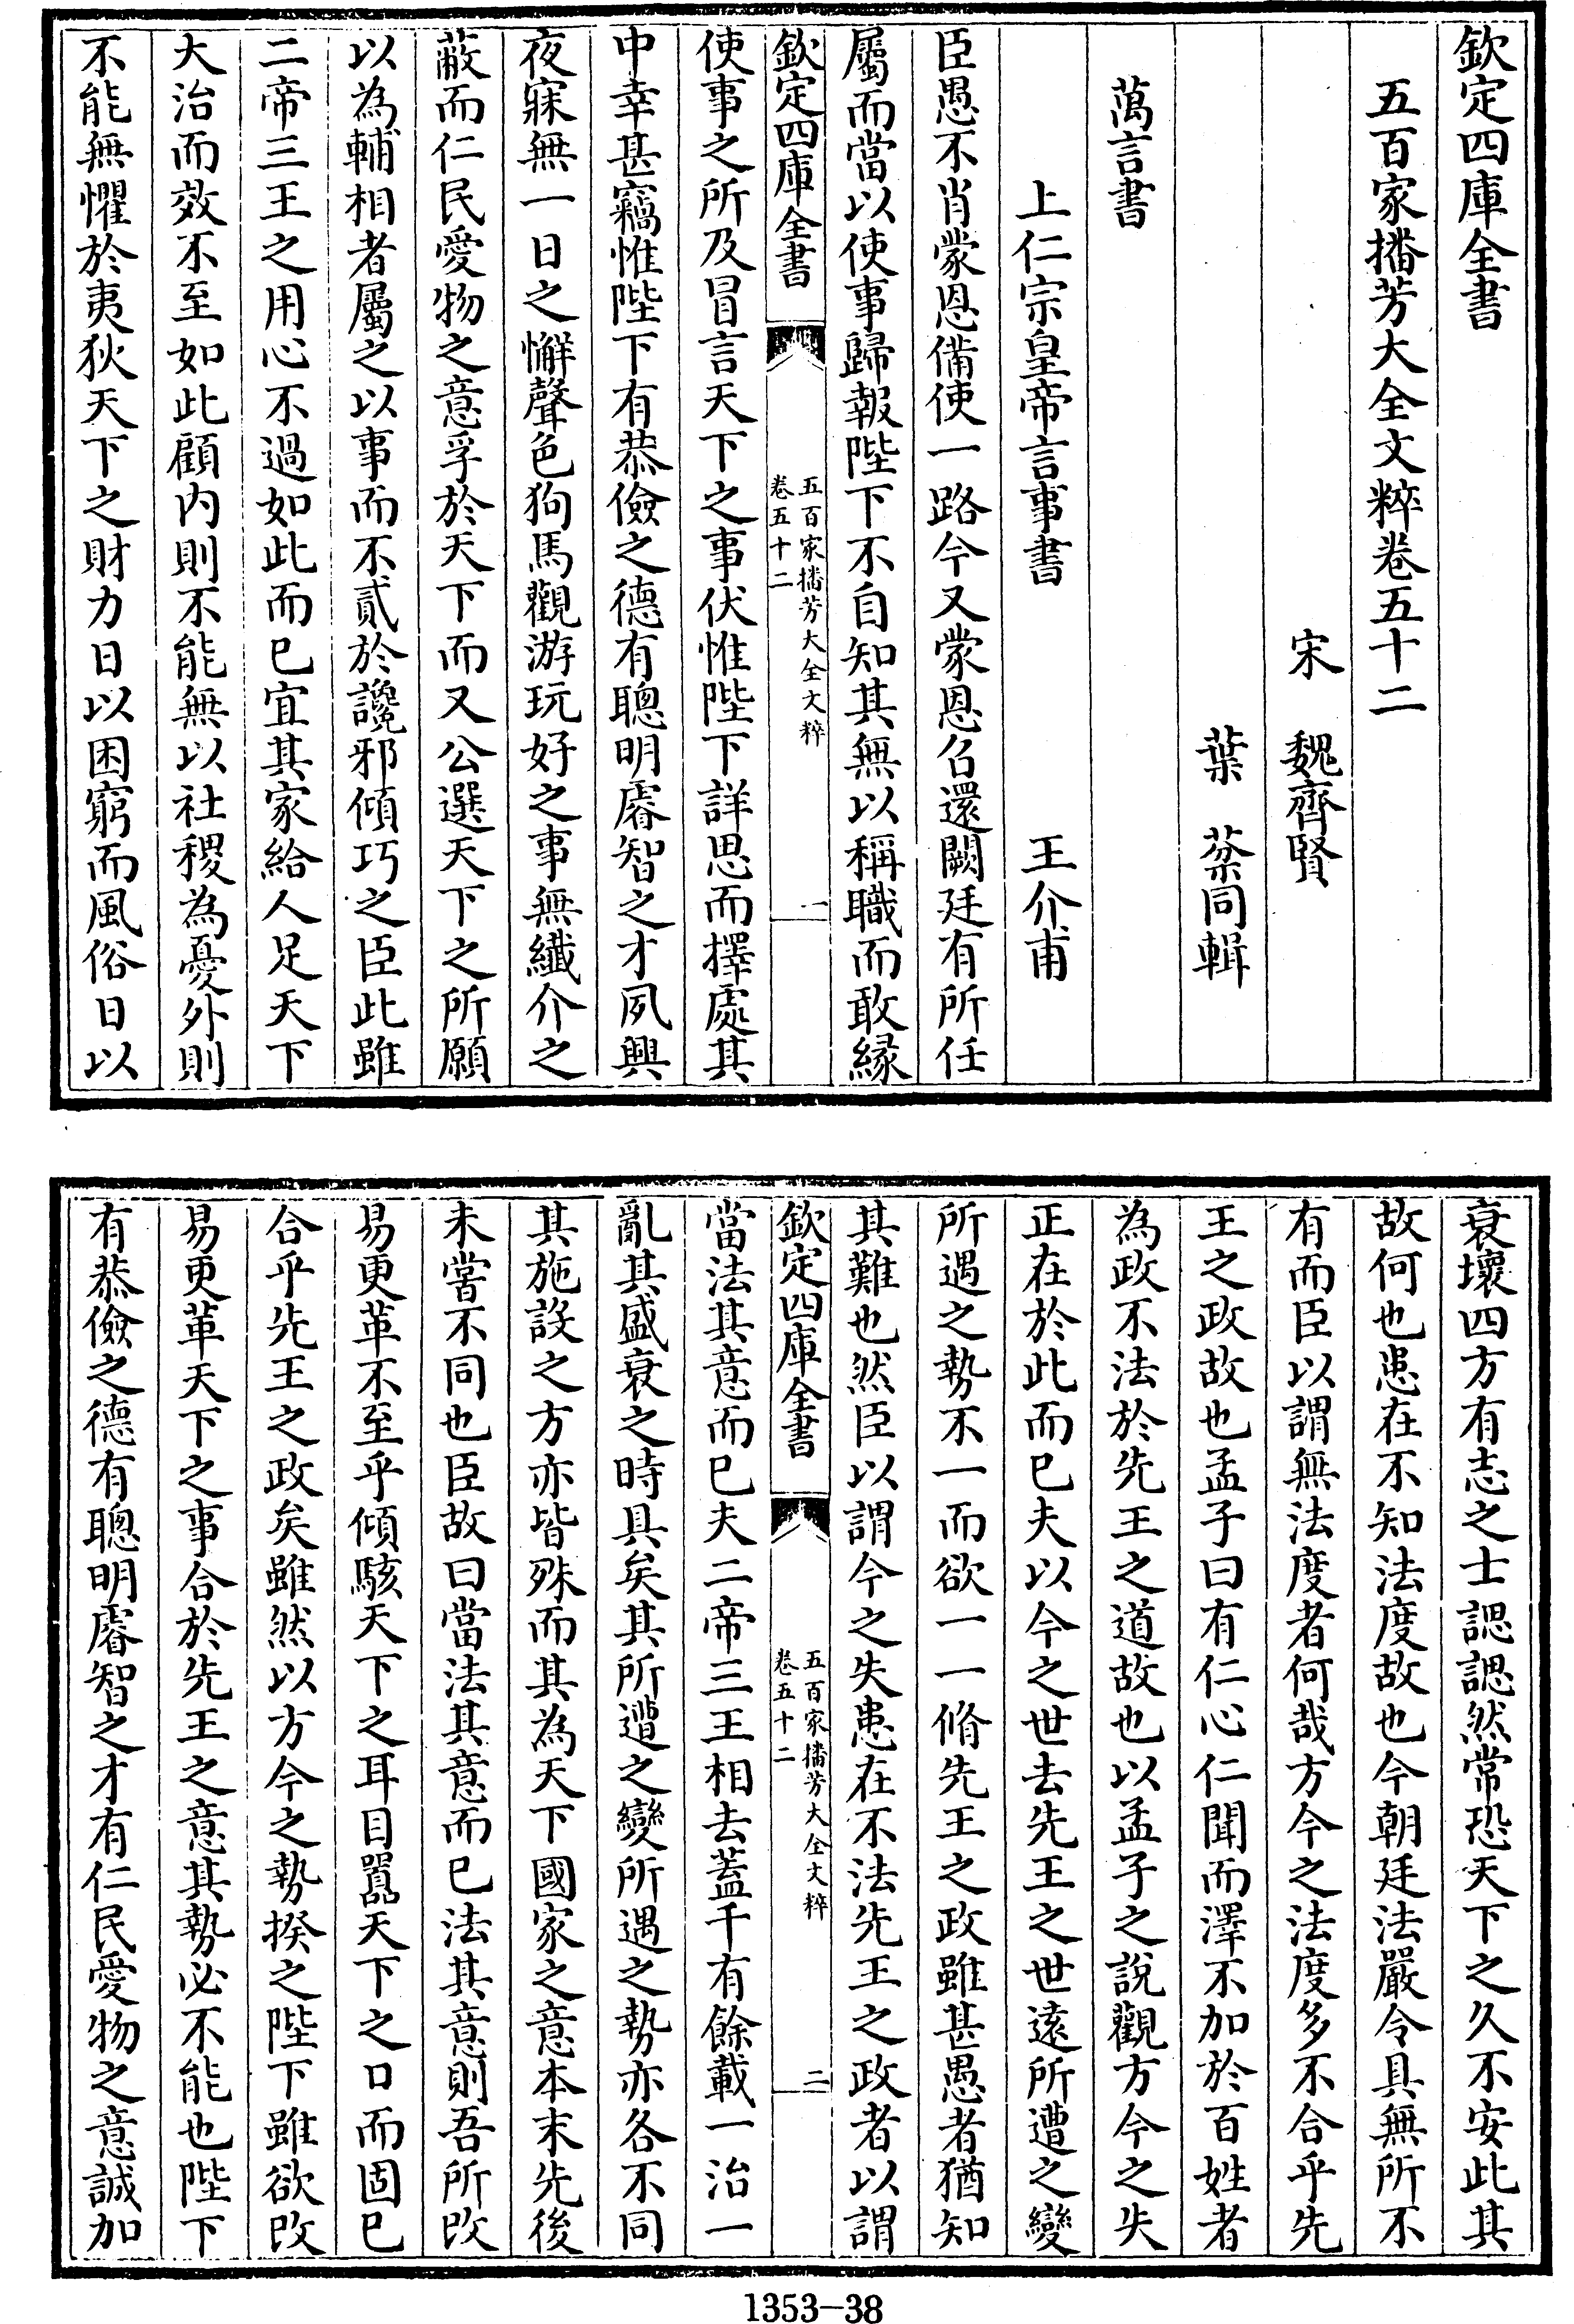 欽定四庫全書
五百家播芳大全文粹卷五十二
宋　魏齊賢
葉　棻同輯
萬言書
上仁宗皇帝言事書　王介甫
臣愚不肖蒙恩備使一路今又蒙恩召還闕廷有所任
屬而當以使事歸報陛下不自知其無以稱職而敢緣
欽定四庫全書
五百家播芳大全文粹
卷五十二
一
使事之所及冒言天下之事伏惟陛下詳思而擇處其
中幸甚竊惟陛下有恭儉之德有聰明睿智之才夙興
夜寐無一日之懈聲色狗馬觀游玩好之事無纖介之
蔽而仁民愛物之意孚於天下而又公選天下之所願
以為輔相者屬之以事而不貳於讒邪傾巧之臣此雖
二帝三王之用心不過如此而已宜其家給人足天下
大治而效不至如此顧內則不能無以社稷為憂外則
不能無懼於夷狄天下之財力日以困窮而風俗日以
衰壞四方有志之士諰諰然常恐天下之久不安此其
故何也患在不知法度故也今朝廷法嚴令具無所不
有而臣以謂無法度者何哉方今之法度多不合乎先
王之政故也孟子曰有仁心仁聞而澤不加於百姓者
為政不法於先王之道故也以孟子之說觀方今之失
正在於此而已夫以今之世去先王之世遠所遭之變
所遇之勢不一而欲一一脩先王之政雖甚愚者猶知
其難也然臣以謂今之失患在不法先王之政者以謂
欽定四庫全書
五百家播芳大全文粹
卷五十二
二
當法其意而已夫二帝三王相去蓋千有餘載一治一
亂其盛衰之時具矣其所遭之變所遇之勢亦各不同
其施設之方亦皆殊而其為天下國家之意本末先後
未嘗不同也臣故曰當法其意而已法其意則吾所改
易更革不至乎傾駭天下之耳目囂天下之口而固已
合乎先王之政矣雖然以方今之勢揆之陛下雖欲改
易更革天下之事合於先王之意其勢必不能也陛下
有恭儉之德有聰明睿智之才有仁民愛物之意誠加
1353-38